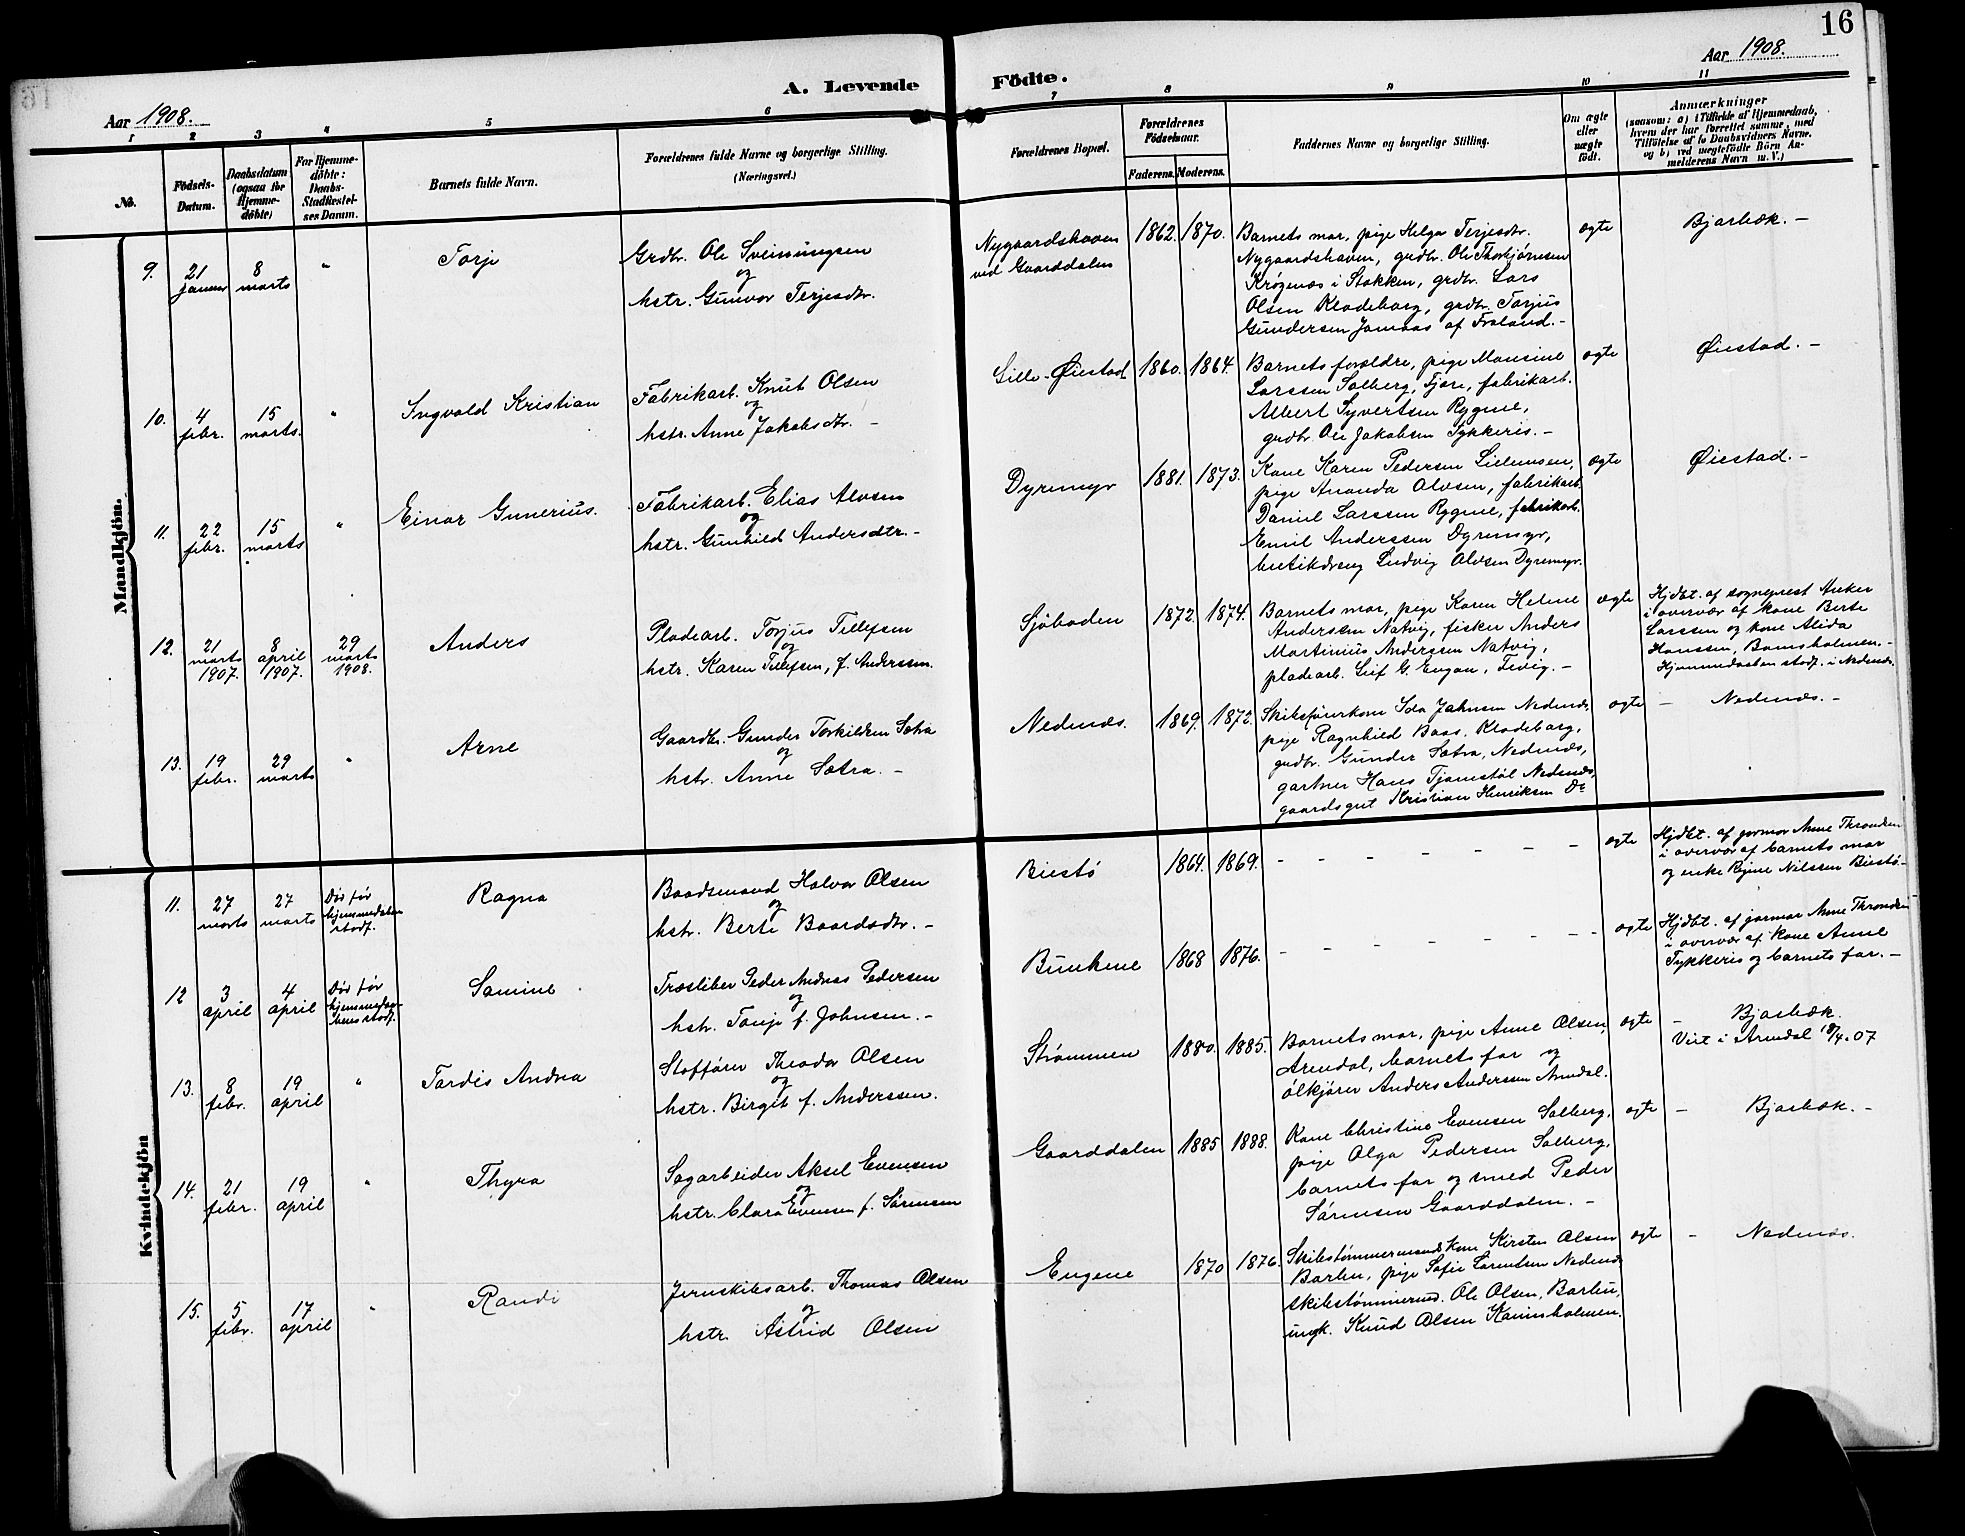 16
A. Levende Födte.
Aar 1908.
Aar 1908.
1 2 3 4 5 6 7 8 9 10 11
No.
Födsels-Datum.
Daabsdatum (ogsaa for Hjemme-döbte)
For Hjemme-döbte: Daabs-Stadfestel-ses Datum.
Barnets fulde Navn.
Forældrenes fulde Navne og borgerlige Stilling.
(Næringsvei.)
Forældrenes Bopæl.
Forældrenes Födselsaar.
Faderens. Moderens.
Faddernes Navne og borgerlige Stilling.
Om ægte eller uægte födt.
Anmærkninger
(saasom: a) i Tilfælde af Hjemmedaab,
hvem der har forrettet samme, med
Tilföielse af to Daabsvidners Navne,
og b) ved uægtefödte Börn An-
melderens Navn m. V.)
Mandkjön.
9. 21 januar 8 marts " Torje
Grdbr. Ole Sveinungsen
og
hstr. Gunvor Terjesdtr.
Nygaardshaven
ved Gaarddalen
1862. 1870.
Barnets mor, pige Helga Terjesdtr.
Nygaardshaven, grdbr. Ole Thorbjørnsen
Krøgenæs i Stokken, grdbr. Lars
Olsen Klodeborg, grdbr. Torjus
Gundersen Jomaas af Froland. -
ægte
Bjorbæk. -
10. 4 febr. 15 marts. " Ingvald Kristian
Fabrikarb. Knut Olsen
og
hstr. Anne Jakobsdtr. -
Lille-Øiestad 1860. 1864.
Barnets forældre, pige Monsine
Larssen Solberg, Fjære, fabrikarb.
Albert Syvertsen Rygene,
grdbr. Ole Jakobsen Tykkeris. -
ægte
Øiestad. -
11. 22 febr. 15 marts " Einar Gunerius.
Fabrikarb. Elias Alvsen
og
hstr. Gunhild Andersdtr. -
Dyremyr 1881. 1873.
Kone Karen Pedersen
pige Amanda Olvsen, fabrikarb.
Daniel Larssen Rygene, fabrikarb.
Emil Anderssen Dyremyr,
butikdreng Ludvig Olvsen Dyremyr.
ægte
Øiestad. -
12. 21 marts 1907. 8 april 1907. 29 marts 1908. Anders
Pladearb. Torjus Tellefsen
og
hstr. Karen Tellefsen, f. Anderssen.
Sjøboden 1872. 1874.
Barnets mor, pige Karen Helene
Anderssen Natvig, fisker Anders
Martinius Anderssen Natvig,
pladearb. Leif G. Engan, Fevig. -
ægte
Hjdbt. af sogneprest Anker
i overvær af kone Berte
Larssen og kone Alida
Hanssen, Bomsholmen. -
Hjemmedaaben stadf. i Nedenæs.
13. 19 febr. 29 marts " Arne
Gaardbr. Gunder Torkildsen Sætra
og
hstr. Anne Sætra. -
Nedenæs. 1869. 1872.
Skibsførerkone Ida Johnsen Nedenæs
pige Ragnhild Baas, Klodeborg,
grdbr. Gunder Sætra, Nedenæs,
gartner Hans Tjomstøl Nedenæs,
gaardsgut Kristian Henriksen Do
ægte
- Nedenæs. -
Kvindekjön
11. 27 marts 27 marts Død før hjemmedaaben stadf. Ragna
Baadsmand Halvor Olsen
og
hstr. Berte Baardsdtr. -
Biestø 1864. 1869.
- - - - - - - -
ægte
Hjdbt. af jormor Anne Thronsen
i overvær af barnets mor
og enke Regine Nilssen Biestø. -
12 3 april 4 april Død før hjemmedaabens stadf. Samine
Træsliber Peder Andreas Pedersen
og
hstr. Tonje f. Johnsen. -
Bunkene 1868 1876.
- - - - - - - -
ægte
Hjdbt. af jormor Anne Thronsen
i overvær af kone Anne
Tykkeris og barnets far. -
13. 8 febr. 19 april " Tordis Andrea
Stoffører Theodor Olsen
og
hstr. Birgit f. Anderssen.
Strømmen 1880. 1885.
Barnets mor, pige Anne Olsen,
Arendal, barnets far og
ølkjører Anders Anderssen Arendal.
ægte
- Bjorbæk.
Viet i Arendal 18/4. 07
14. 21 febr. 19 april " Thyra
Sagarbeider Aksel Evensen
og
hstr. Clara Evensen f. Sørensen
Gaarddalen 1885 1888.
Kone Christine Evensen Solberg,
pige Olga Pedersen Solberg,
barnets far og smed Peder
Sørensen Gaarddalen. -
ægte
- Bjorbæk. -
15. 5 febr. 17 april " Randi
Jernskibsarb. Thomas Olsen
og
hstr. Astrid Olsen
Engene 1870 1876.
Skibstømmermands kone Kirsten Olsen
Barbu, pige Sofie Lorentsen Nedenæs
skibstømmermd. Ole Olsen, Barbu,
ungk. Knud Olsen
ægte
- Nedenæs.